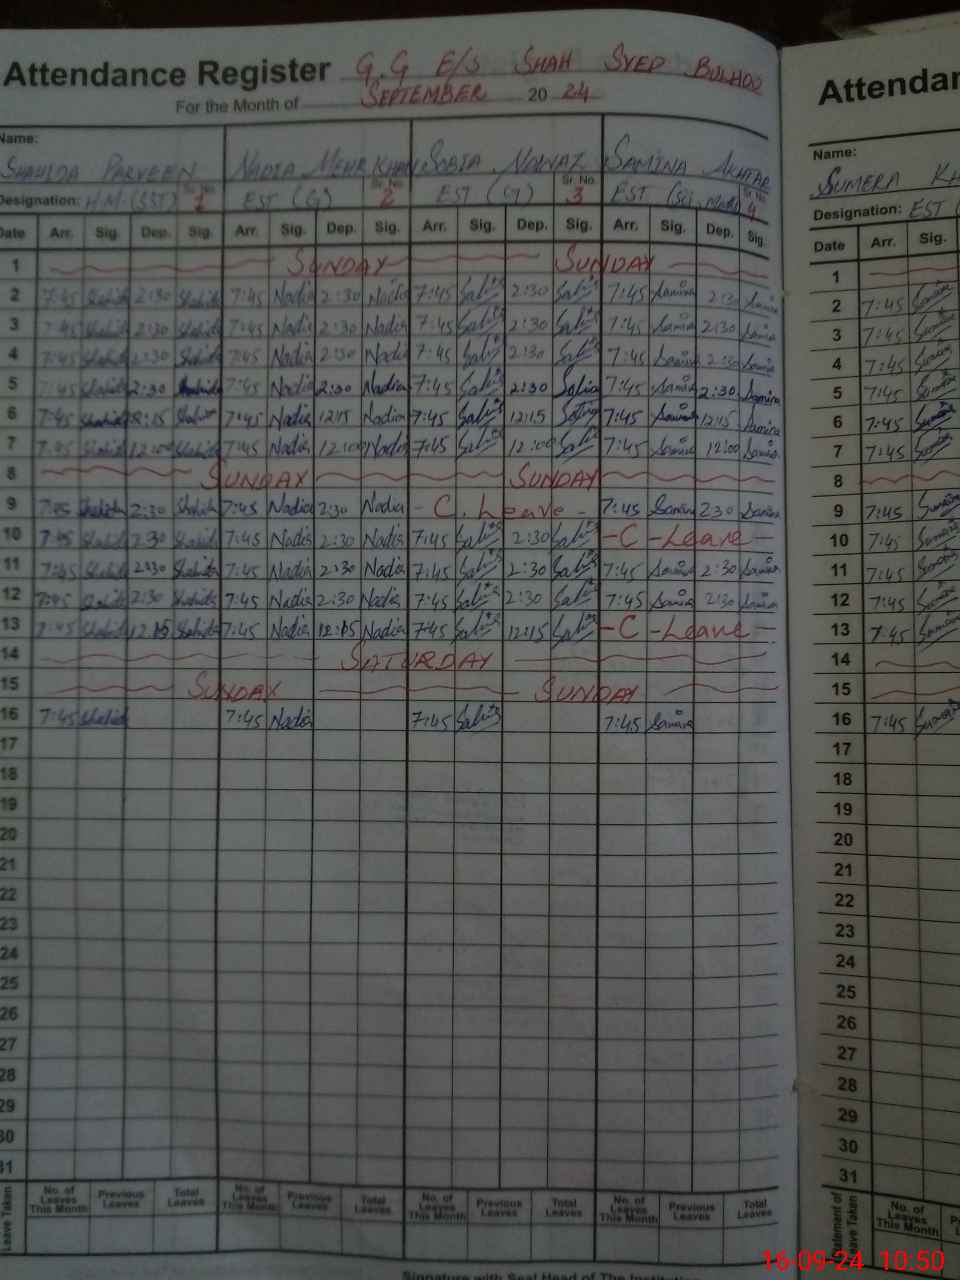 Attendance Register G.G E/S SHAH SYED BULHOO
For the Month of SEPTEMBER 20 24
Name:
SHAHIDA PARVEEN NADIA MEHR KHAN SOBIA NOWAZ SAMINA AKHTAR
Designation: H.M (SST) Sr. No. 1 EST (G) Sr. No. 2 EST (G) Sr. No. 3 EST (Sci, Math) Sr. No. 4
Date Arr. Sig. Dep. Sig. Arr. Sig. Dep. Sig. Arr. Sig. Dep. Sig. Arr. Sig. Dep. Sig.
1 SUNDAY SUNDAY
2 7:45 Shahida 2:30 Shahida 7:45 Nadia 2:30 Nadia 7:45 2:30 7:45 Samina 2:30 Samina
3 7:45 Shahida 2:30 Shahida 7:45 Nadia 2:30 Nadia 7:45 2:30 7:45 Samina 2:30 Samina
4 7:45 Shahida 2:30 Shahida 7:45 Nadia 2:30 Nadia 7:45 2:30 7:45 Samina 2:30 Samina
5 7:45 Shahida 2:30 Shahida 7:45 Nadia 2:30 Nadia 7:45 2:30 7:45 Samina 2:30 Samina
6 7:45 Shahida 12:15 Shahida 7:45 Nadia 12:15 Nadia 7:45 12:15 7:45 Samina 12:15 Samina
7 7:45 Shahida 12:00 Shahida 7:45 Nadia 12:00 Nadia 7:45 12:00 7:45 Samina 12:00 Samina
8 SUNDAY SUNDAY
9 7:45 Shahida 2:30 Shahida 7:45 Nadia 2:30 Nadia - C. Leave - 7:45 Samina 2:30 Samina
10 7:45 Shahida 2:30 Shahida 7:45 Nadia 2:30 Nadia 7:45 2:30 - C - Leave -
11 7:45 Shahida 2:30 Shahida 7:45 Nadia 2:30 Nadia 7:45 2:30 7:45 Samina 2:30 Samina
12 7:45 Shahida 2:30 Shahida 7:45 Nadia 2:30 Nadia 7:45 2:30 7:45 Samina 2:30 Samina
13 7:45 Shahida 12:15 Shahida 7:45 Nadia 12:15 Nadia 7:45 12:15 - C - Leave -
14 SATURDAY
15 SUNDAY SUNDAY
16 7:45 Shahida 7:45 Nadia 7:45 7:45 Samina
17
18
19
20
21
22
23
24
25
26
27
28
29
30
31
Leave Taken No. of Leaves This Month Previous Leaves Total Leaves No. of Leaves This Month Previous Leaves Total Leaves No. of Leaves This Month Previous Leaves Total Leaves No. of Leaves This Month Previous Leaves Total Leaves
Signature with Seal Head of The
Name:
SUMERA
Designation: EST
Date Arr. Sig.
1
2 7:45
3 7:45
4 7:45
5 7:45
6 7:45
7 7:45
8
9 7:45
10 7:45
11 7:45
12 7:45
13 7:45
14
15
16 7:45
17
18
19
20
21
22
23
24
25
26
27
28
29
30
31
No. of Leaves This Month
16-09-24 10:50